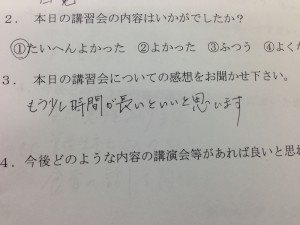 ２．　本日の講習会の内容はいかがでしたか？
①たいへんよかった　②よかった　③ふつう　④よく
３．　本日の講習会についての感想をお聞かせ下さい。
もう少し時間が長いといいと思います
４．今後どのような内容の講演会等があれば良いと思